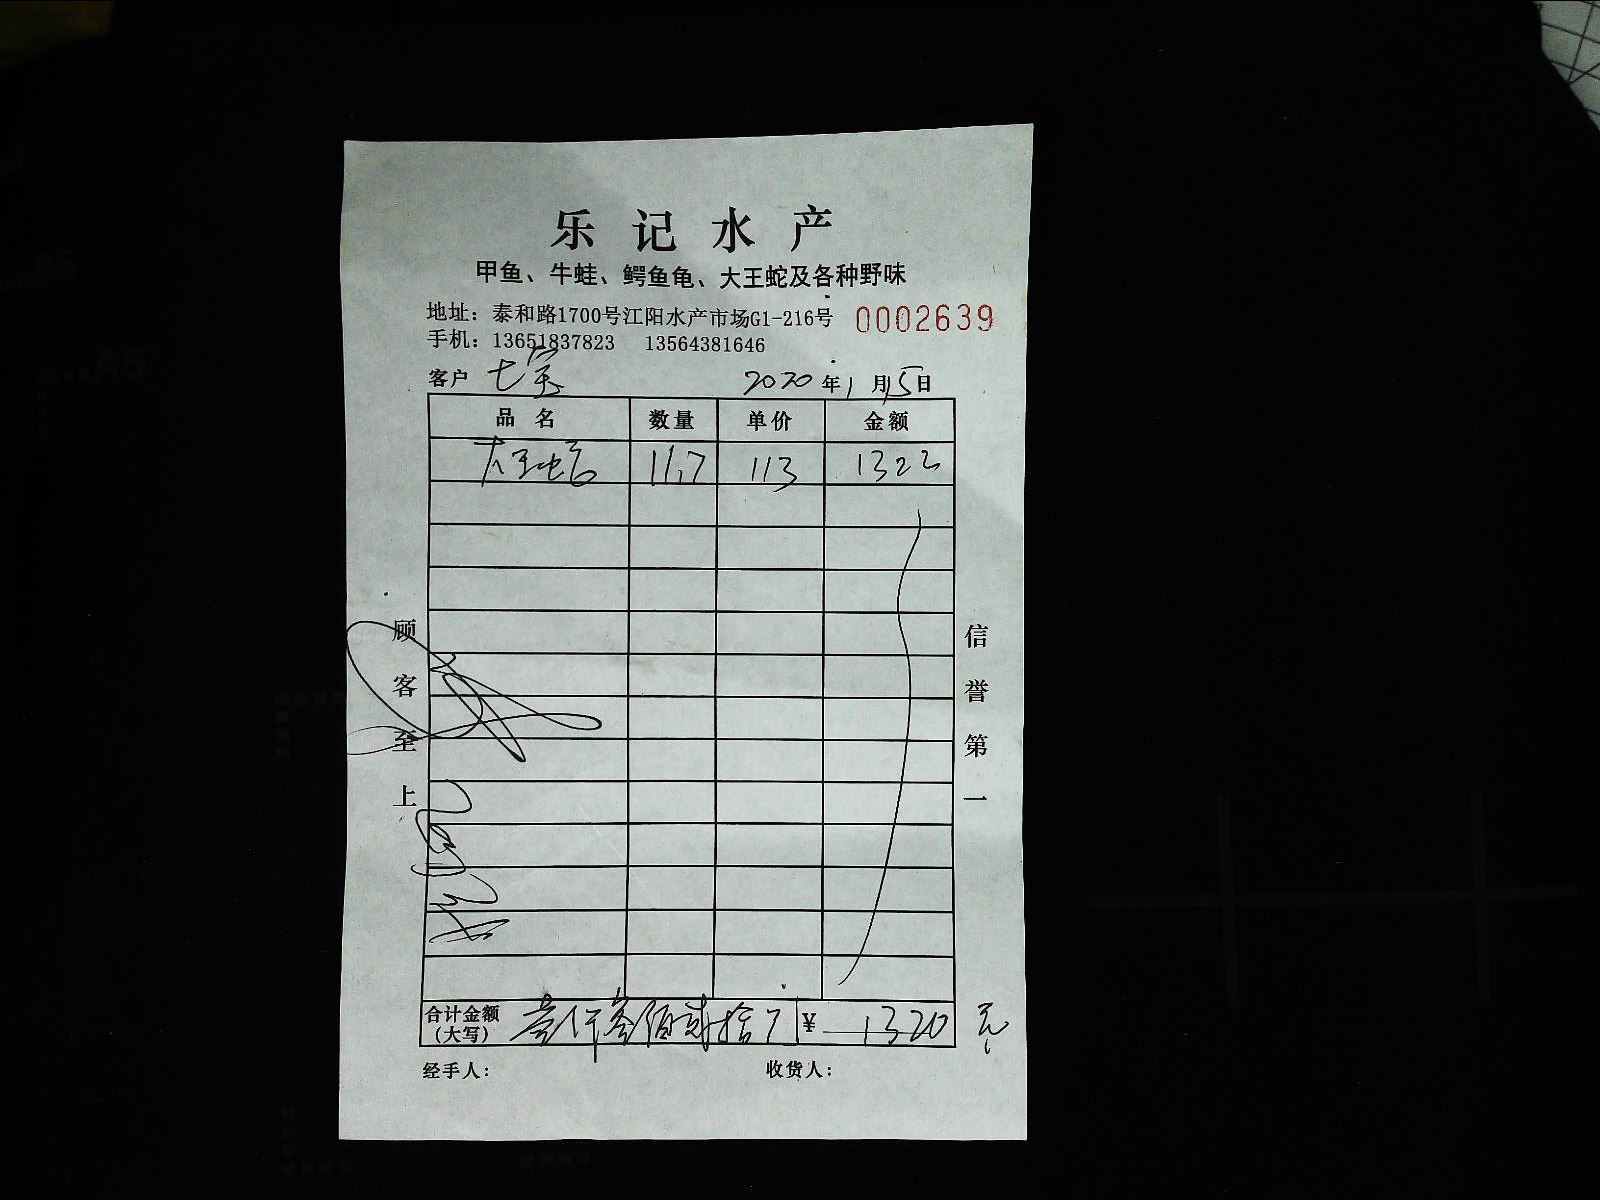 乐记水产
甲鱼、牛蛙、鳄鱼龟、大王蛇及各种野味
地址：泰和路1700号江阳水产市场G1-216号 0002639
手机：13651837823 13564381646
客户 七宝 2020年1月15日
品名 数量 单价 金额
大王蛇 11.7 113 1322
顾客至上
信誉第一
合计金额（大写） 壹仟叁佰贰拾 ¥ 1320 元
经手人： 收货人：